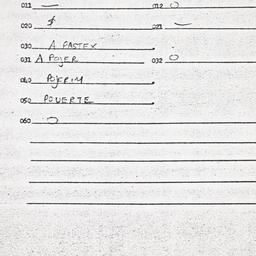 011 — 012 O
020 $ 021 —
030 A PASTEX
031 A POJER 032 O
040 POJERIM
050 POUERTE
060 O